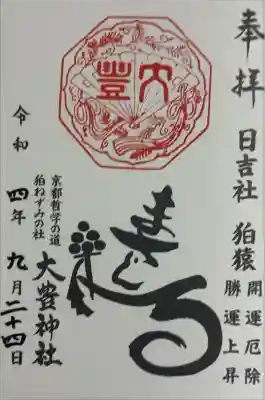 奉拝
日吉社 狛猿
開運厄除
勝運上昇
大豊
まさる
京都哲学の道
狛ねずみの社
大豊神社
令和四年九月二十四日